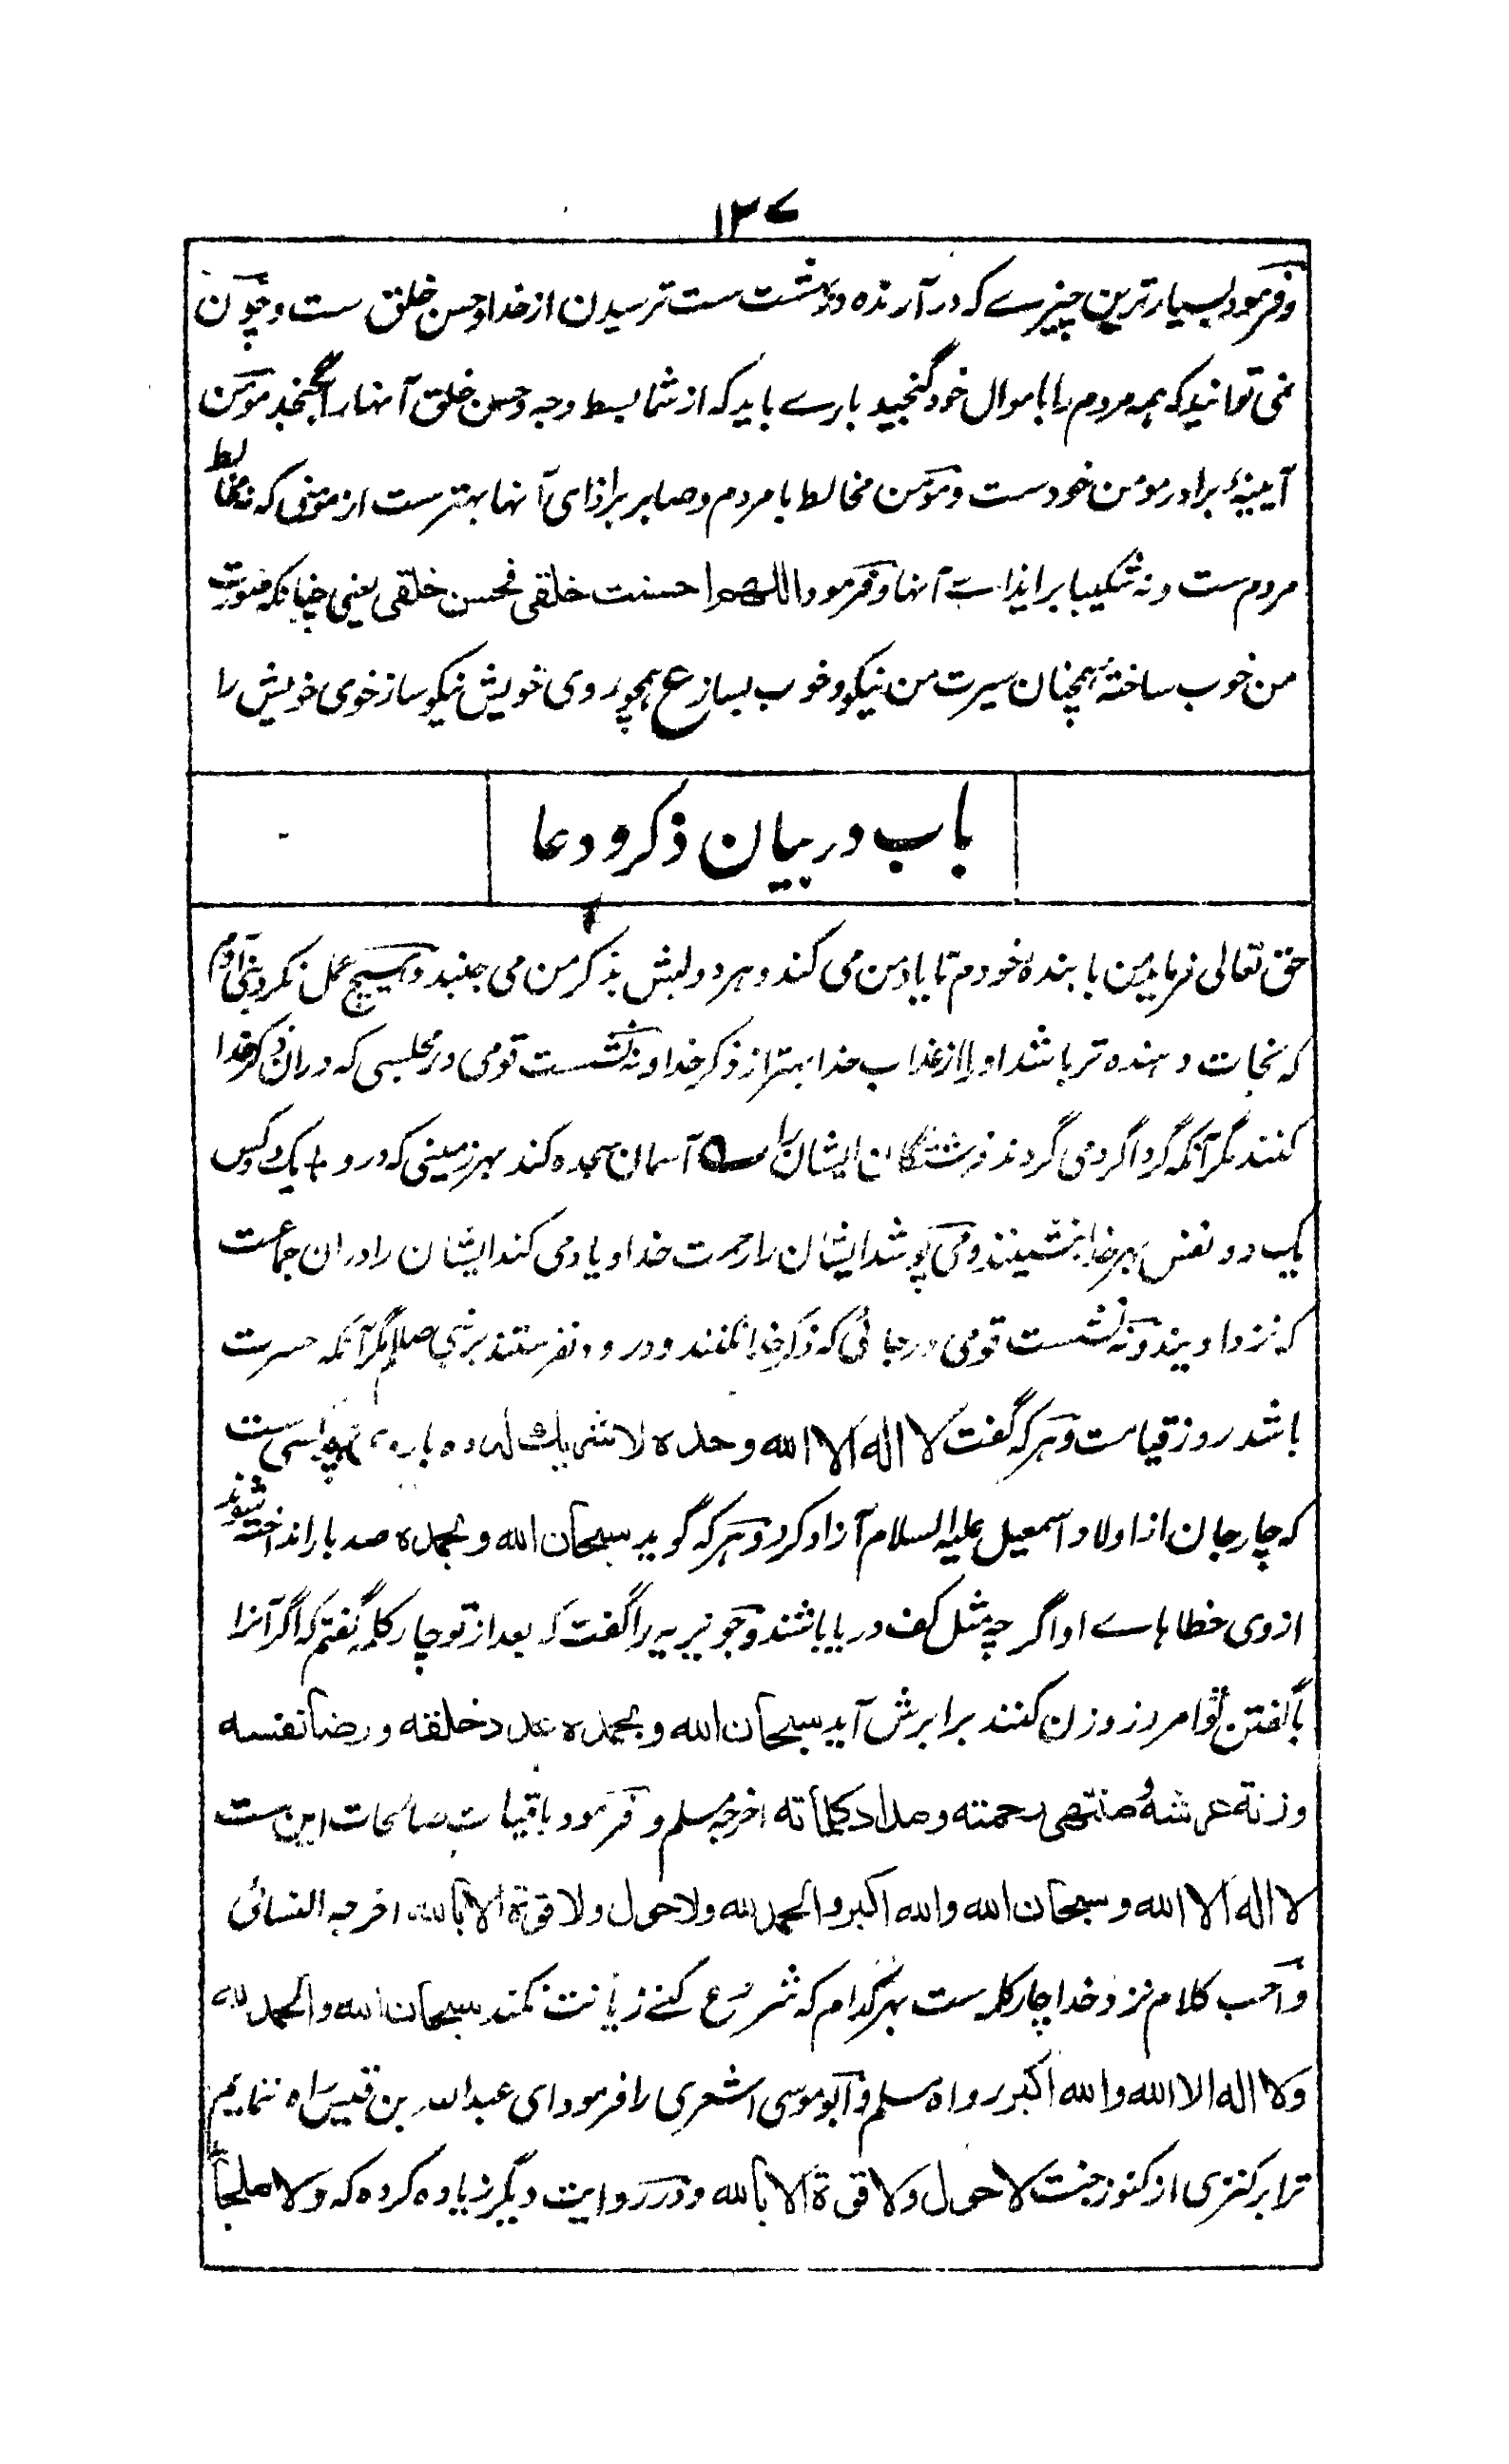 ۱۳۷
وفرمود بسیار ترین چیزے که در آرنده در بهشت ست ترسیدن از خدا و حسن خلق ست و چون
نمی توانید که همه مردم را با موال خود گنجید بارے باید که از شما بسط وجه و حسن خلق آنها را گنجد مومن
آیینهٔ برادر مومن خودست و مومن مخالط با مردم و صابر بر اذای آنها بهترست از مومنی که نه مخالط
مردم ست و نه شکیبا بر ایذاے آنها و فرمود اللهم احسنت خلقی فحسن خلقی یعنی چنانکه صورت
من خوب ساختهٔ همچنان سیرت من نیکو و خوب بساز ع همچو روی خویش نیکو ساز خوی خویش را
باب در بیان ذکر و دعا
حق تعالی فرماید من با بندهٔ خودم تا یاد من می کند و هر دو لبش بذکر من می جنبد و هیچ عمل نکرد بنی آدم
که نجات دهنده تر باشد او را از عذاب خدا بهتر از ذکر خدا و نه نشست قومی در مجلسی که دران ذکر خدا
کنند مگر آنکه گرداگرد می گردند فرشتگان ایشان را آسمان سجده کند بهر زمینی که درو یک دو کس
یک دو نفس بهر خدا بنشینند و می پوشد ایشان را رحمت خدا و یاد می کند ایشان را دران جماعت
که نزد اویند و نه نشست قومی در جائی که ذکر خدا نکنند و درود نفرستند بر نبی صلعم مگر آنکه حسرت
باشد روز قیامت و هر که گفت لا اله الا الله وحده لا شریک له ده بار وی همچو کسی ست
که چار جان از اولاد اسمعیل علیه السلام آزاد کرد و هر که گوید سبحان الله و بحمده صد بار انداخته شوند
ازوی خطاهاے او اگر چه مثل کف دریا باشند و جویریه را گفت که بعد از تو چار کلمه گفتم که اگر آنرا
با گفتن تو امروز وزن کنند برابرش آید سبحان الله و بحمده عدد خلقه و رضا نفسه
وزنة عرشه و منتهی رحمته و مداد کلماته اخرجه مسلم و فرمود باقیات صالحات این ست
لا اله الا الله و سبحان الله والله اکبر والحمد لله ولا حول ولا قوة الا بالله اخرجه النسائی
و احب کلام نزد خدا چار کلمه ست بهر کدام که شروع کنے زیانت نکند سبحان الله والحمد لله
ولا اله الا الله والله اکبر رواه مسلم و ابو موسی اشعری را فرمود ای عبد الله بن قیس راه ننمایم
ترا بر کنزی از کنوز جنت لا حول ولا قوة الا بالله و در روایت دیگر زیاده کرده که ولا ملجأ